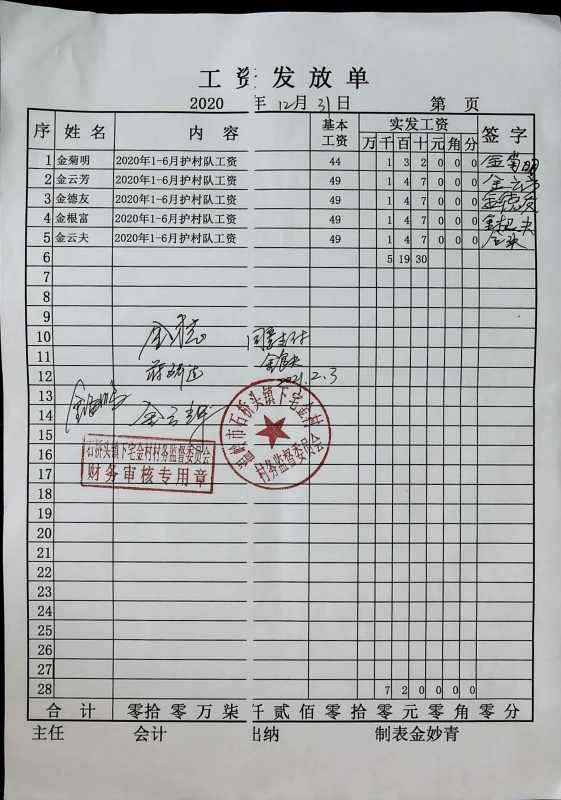 工资发放单
2020 年 12月 31日 第 页
序 姓名 内容 基本工资 实发工资 签字
万 千 百 十 元 角 分
1 金菊明 2020年1-6月护村队工资 44 1 3 2 0 0 0 金菊明
2 金云芳 2020年1-6月护村队工资 49 1 4 7 0 0 0 金云芳
3 金德友 2020年1-6月护村队工资 49 1 4 7 0 0 0 金德友
4 金根富 2020年1-6月护村队工资 49 1 4 7 0 0 0
5 金云夫 2020年1-6月护村队工资 49 1 4 7 0 0 0
6 5 19 30
7
8
9
10 同意支付
11
12 2021.2.3
13
14
15
16
17
温岭市石桥头镇下宅金村
村务监督委员会
石桥头镇下宅金村村务监督委员会
财务审核专用章
18
19
20
21
22
23
24
25
26
27
28 7 2 0 0 0 0
合计 零拾零万柒仟贰佰零拾零元零角零分
主任 会计 出纳 制表金妙青